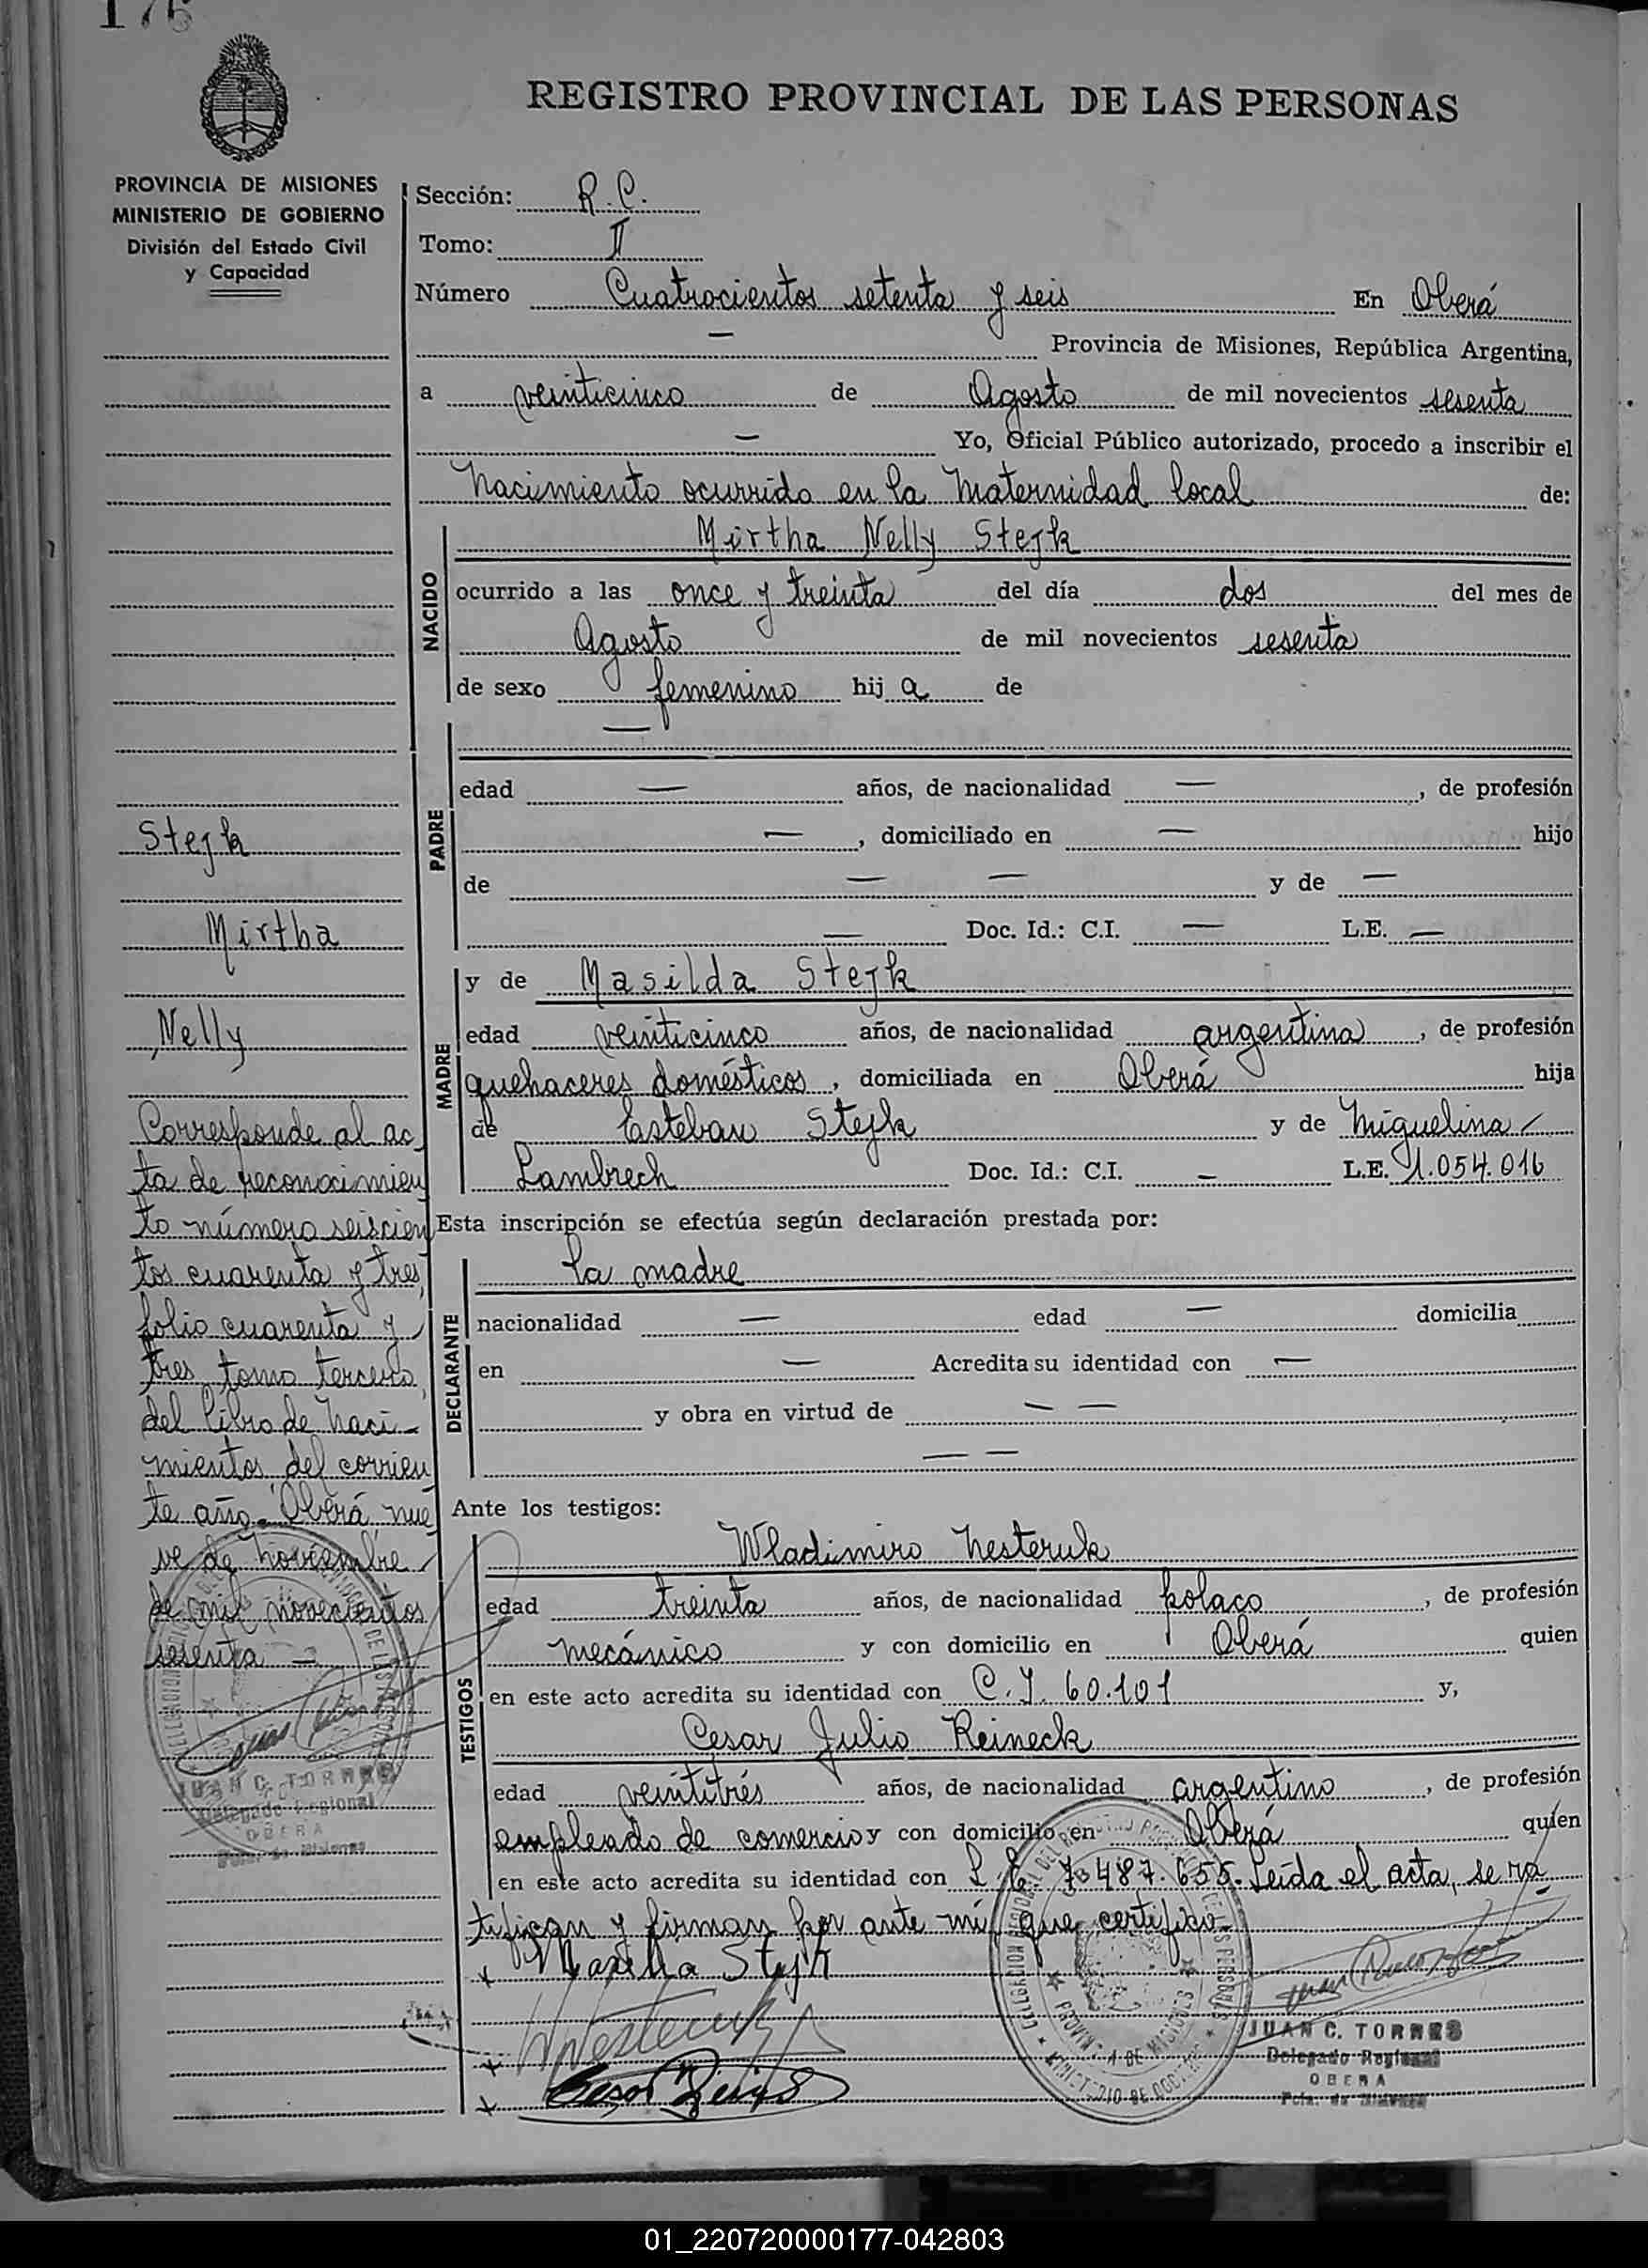 176
REGISTRO PROVINCIAL DE LAS PERSONAS
PROVINCIA DE MISIONES
MINISTERIO DE GOBIERNO
División del Estado Civil
y Capacidad
Sección: R. C.
Tomo: II
Número Cuatrocientos setenta y seis En Oberá
— Provincia de Misiones, República Argentina,
a veinticinco de Agosto de mil novecientos sesenta
— Yo, Oficial Público autorizado, procedo a inscribir el
Nacimiento ocurrido en la Maternidad local de:
NACIDO
Mirtha Nelly Stejk
ocurrido a las once y treinta del día dos del mes de
Agosto de mil novecientos sesenta
de sexo femenino hij a de
PADRE
—
edad — años, de nacionalidad —, de profesión
—, domiciliado en — hijo
de — — y de —
— Doc. Id.: C.I. — L.E. —
MADRE
y de Masilda Stejk
edad veinticinco años, de nacionalidad argentina, de profesión
quehaceres domésticos, domiciliada en Oberá hija
de Esteban Stejk y de Miguelina
Lambrech Doc. Id.: C.I. — L.E. 1.054.016
Esta inscripción se efectúa según declaración prestada por:
DECLARANTE
la madre
nacionalidad — edad — domicilia
en — Acredita su identidad con —
y obra en virtud de — —
— —
Ante los testigos:
TESTIGOS
Wladimiro Nesteruk
edad treinta años, de nacionalidad polaco, de profesión
mecánico y con domicilio en Oberá quien
en este acto acredita su identidad con C. I. 60.101 y,
Cesar Julio Reineck
edad veintitrés años, de nacionalidad argentino, de profesión
empleado de comercio y con domicilio en Oberá quien
en este acto acredita su identidad con L. E. 7.487.655. Leída el acta, se ra
tifican y firman por ante mí, que certifico.
Stejk
JUAN C. TORRES
Delegado Regional
OBERA
Pcia. de Misiones
Stejk
Mirtha
Nelly
Corresponde al ac
ta de reconocimien
to número seiscien
tos cuarenta y tres,
folio cuarenta y
tres, tomo tercero,
del libro de Naci-
mientos del corrien
te año. Oberá, nue
ve de Noviembre
de mil novecientos
sesenta —
JUAN C. TORRES
Delegado Regional
OBERA
Pcia. de Misiones
01_220720000177-042803